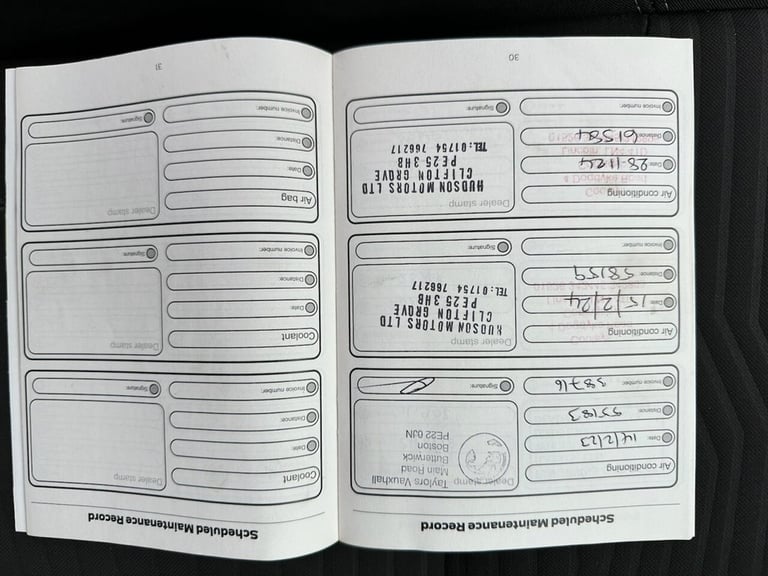 Scheduled Maintenance Record
Air conditioning
Date: 14/2/23
Distance: 55183
Invoice number: 38716
Dealer stamp
Taylors Vauxhall
Main Road
Butterwick
Boston
PE22 0JN
Signature:
Air conditioning
Date: 15/2/24
Distance: 58159
Invoice number:
Dealer stamp
HUDSON MOTORS LTD
CLIFTON GROVE
PE25 3HB
TEL:01754 766217
Signature:
Air conditioning
Date: 28-11-24
Distance: 61584
Invoice number:
Dealer stamp
HUDSON MOTORS LTD
CLIFTON GROVE
PE25 3HB
TEL:01754 766217
Signature:
30
Scheduled Maintenance Record
Coolant
Date:
Distance:
Invoice number:
Dealer stamp
Signature:
Coolant
Date:
Distance:
Invoice number:
Dealer stamp
Signature:
Air bag
Date:
Distance:
Invoice number:
Dealer stamp
Signature:
31